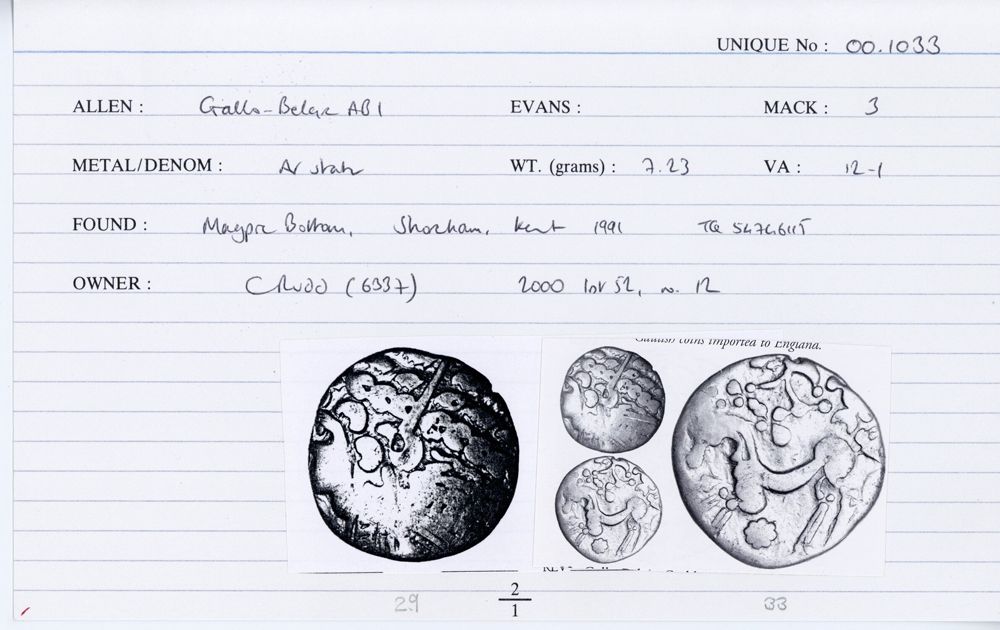 UNIQUE No : 00.1033
ALLEN : Gallo-Belgic AB1 EVANS : MACK : 3
METAL/DENOM : AV stater WT. (grams) : 7.23 VA : 12-1
FOUND : Magpie Bottom, Shoreham, Kent 1991 TQ 54746115
OWNER : C Rudd (6337) 2000 list 52, no. 12
Gaulish coins imported to England.
29 2/1 33